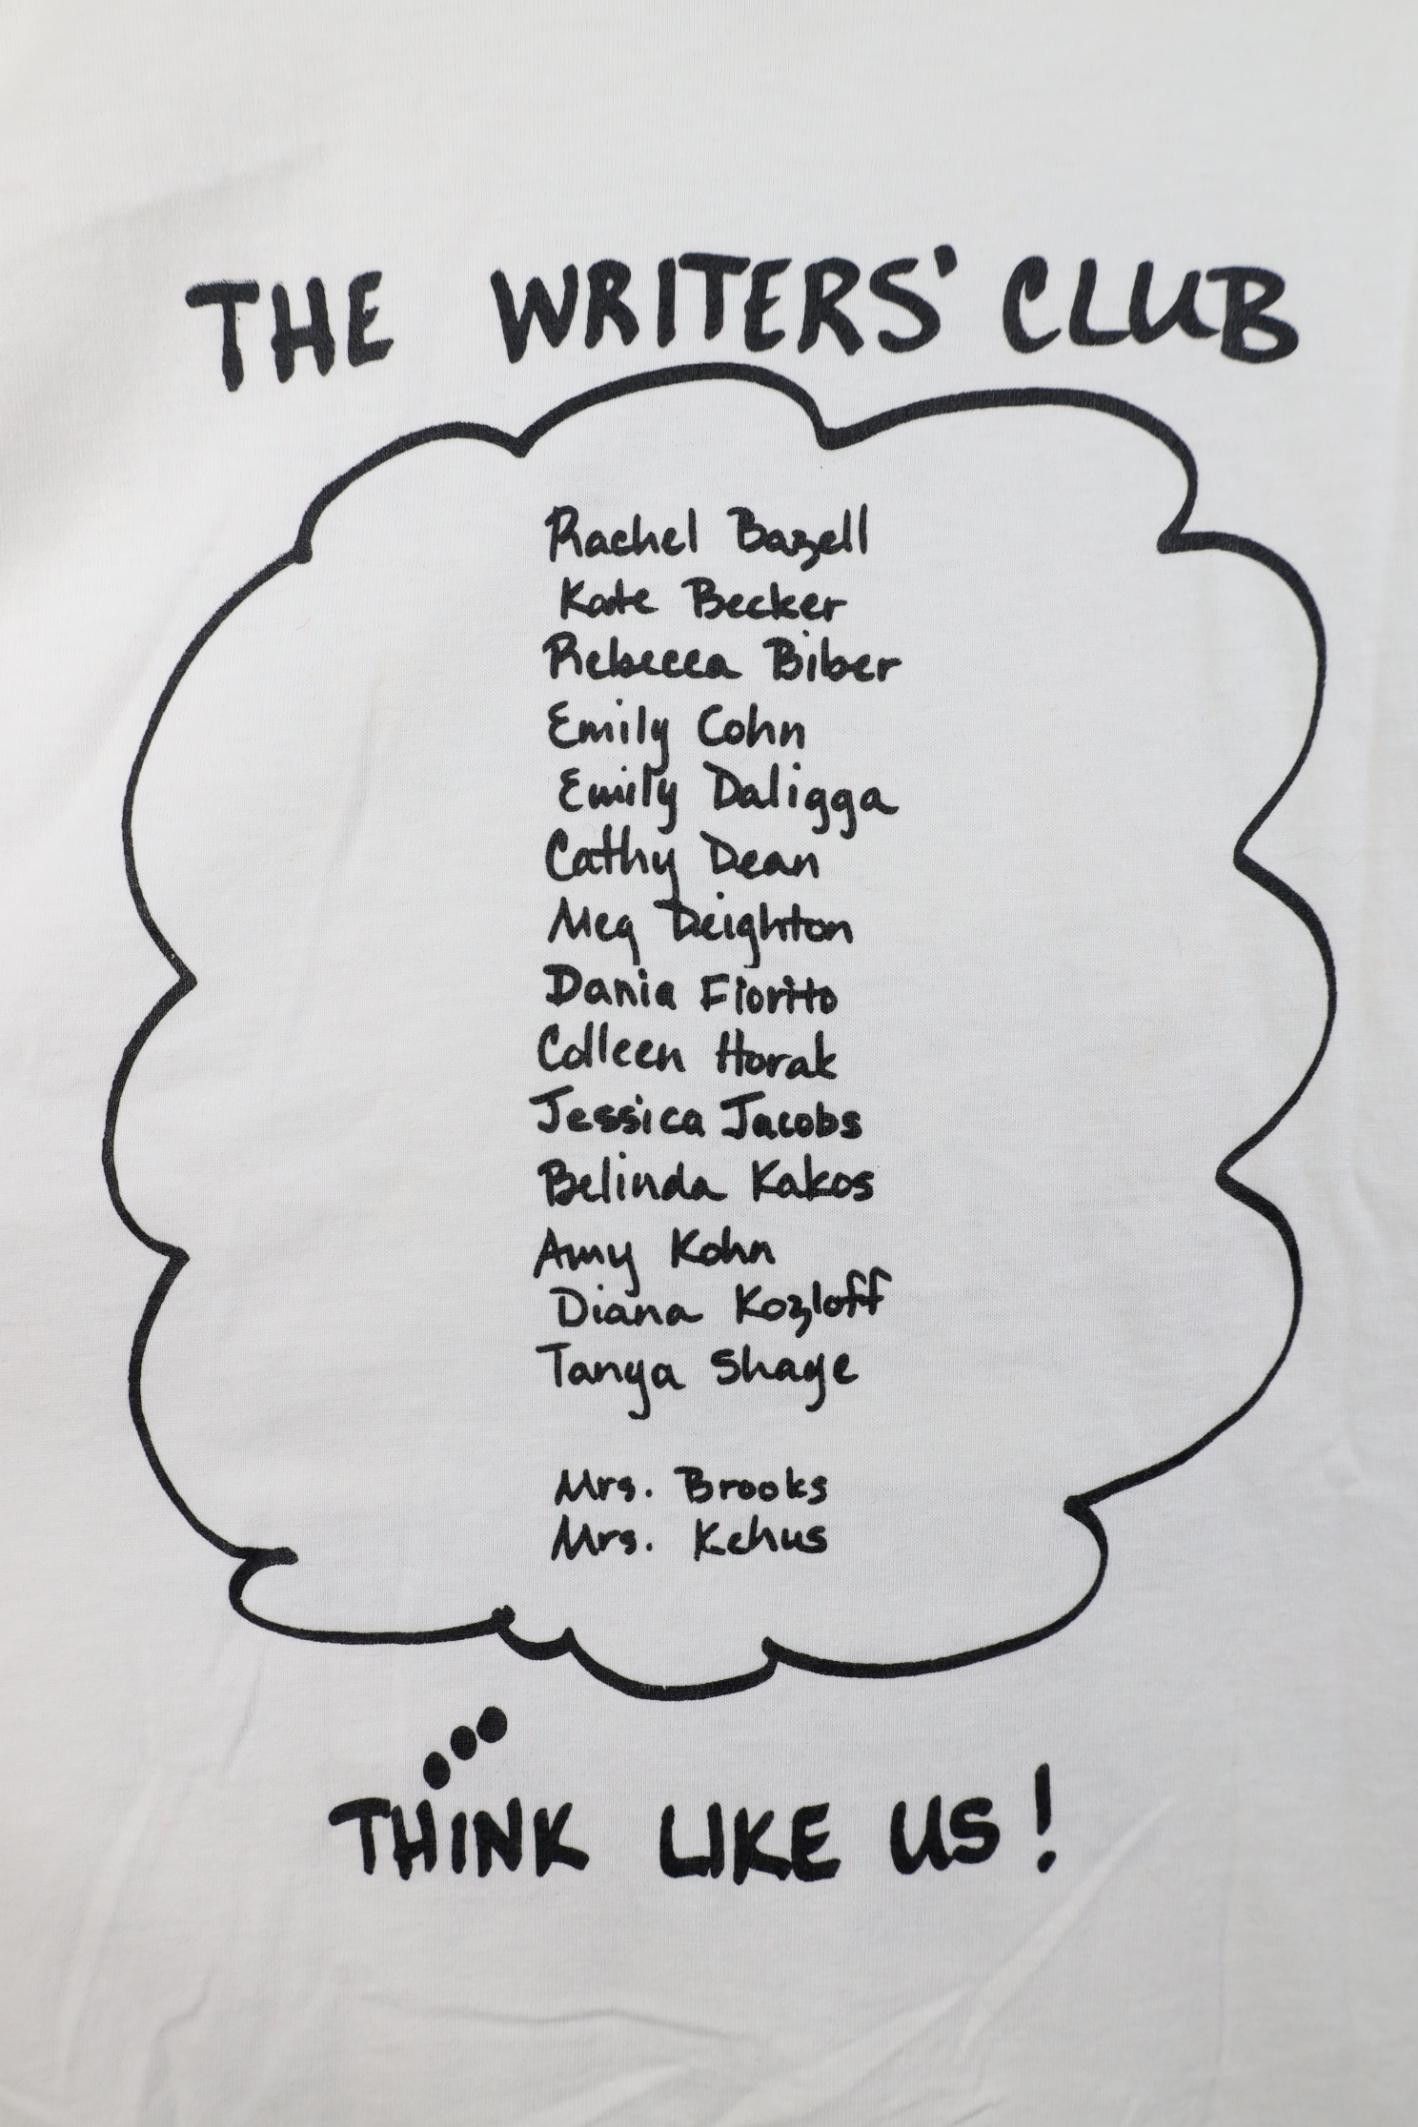 THE WRITERS' CLUB
Rachel Bazell
Kate Becker
Rebecca Biber
Emily Cohn
Emily Daligga
Cathy Dean
Meg Deighton
Dania Fiorito
Colleen Horak
Jessica Jacobs
Belinda Kakos
Amy Kohn
Diana Kozloff
Tanya Shaye
Mrs. Brooks
Mrs. Kehus
THINK LIKE US!